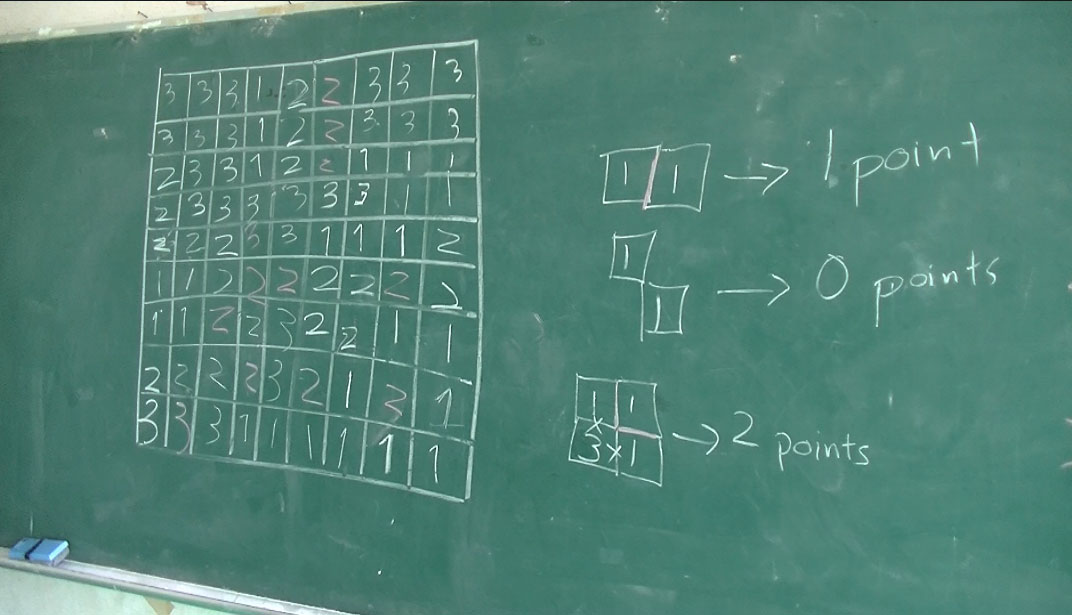 3 3 3 1 2 2 3 3 3
3 3 3 1 2 2 3 3 3
2 3 3 1 2 2 1 1 1
2 3 3 3 3 3 3 1 1
2 2 2 3 3 1 1 1 2
1 1 2 2 2 2 2 2 2
1 1 2 2 3 2 2 1 1
2 2 2 2 3 2 1 2 1
3 3 3 1 1 1 1 1 1
1 1 → 1 point
1
1 → 0 points
1 1
3 x 1 → 2 points
x